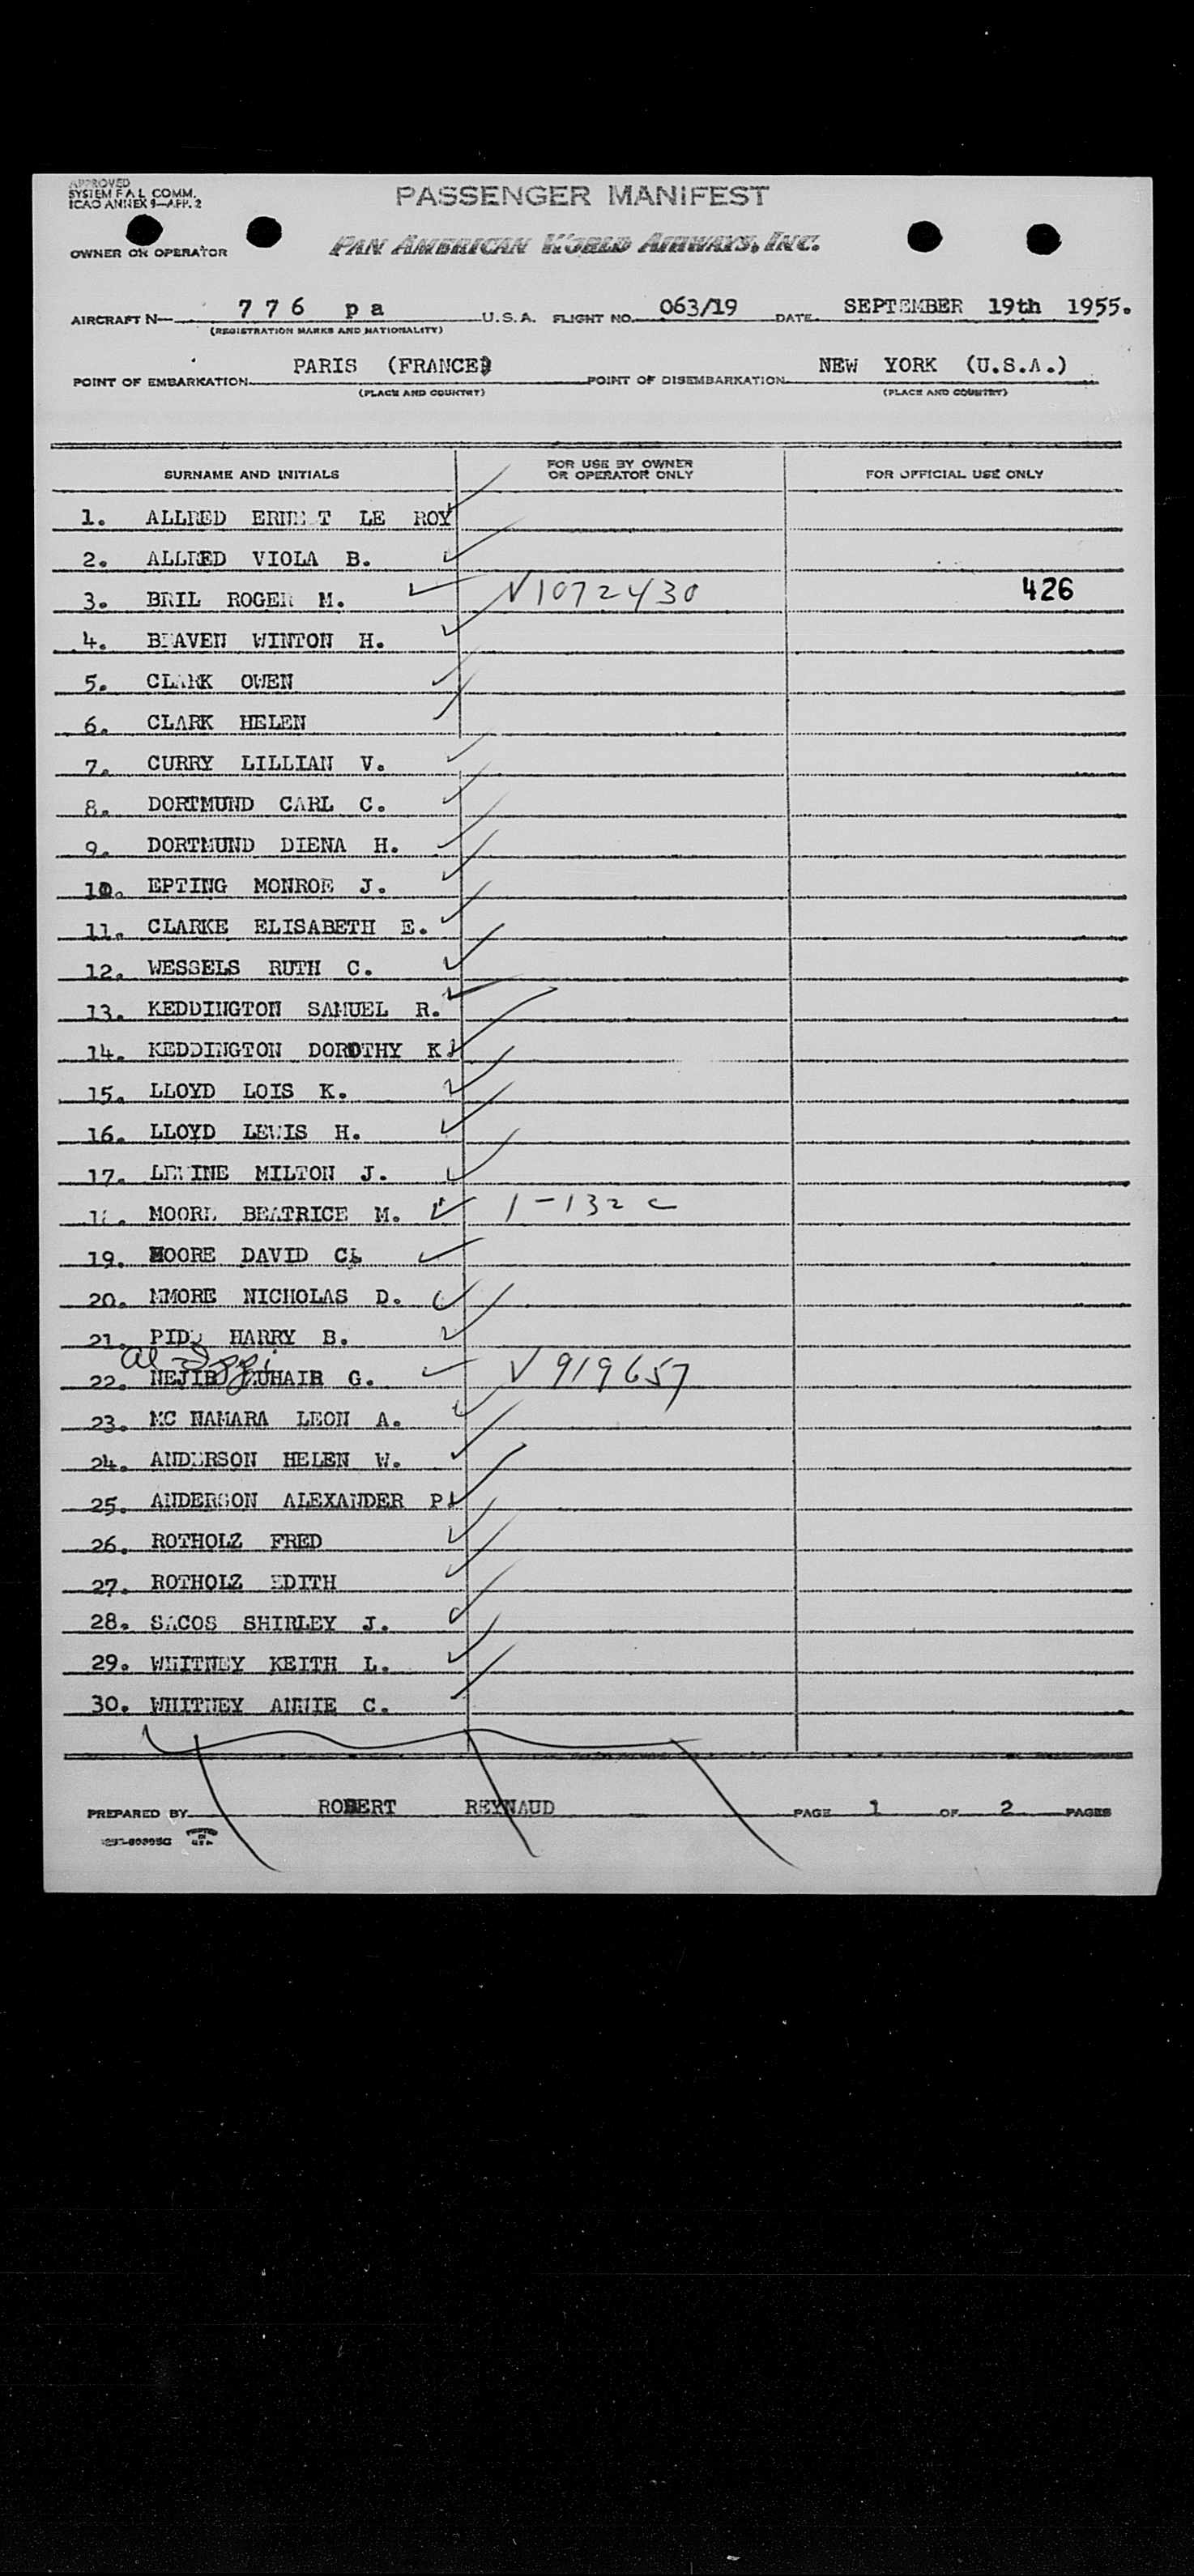 APPROVED
SYSTEM F.A.L. COMM.
ICAO ANNEX 9—APP. 2
PASSENGER MANIFEST
OWNER OR OPERATOR PAN AMERICAN WORLD AIRWAYS, INC.
AIRCRAFT N— 776 pa U.S.A. FLIGHT NO. 063/19 DATE SEPTEMBER 19th 1955.
(REGISTRATION MARKS AND NATIONALITY)
POINT OF EMBARKATION PARIS (FRANCE) POINT OF DISEMBARKATION NEW YORK (U.S.A.)
(PLACE AND COUNTRY) (PLACE AND COUNTRY)
SURNAME AND INITIALS FOR USE BY OWNER OR OPERATOR ONLY FOR OFFICIAL USE ONLY
1. ALLRED ERNEST LE ROY
2. ALLRED VIOLA B.
3. BRIL ROGER M. V1072430 426
4. BEAVEN WINTON H.
5. CLARK OWEN
6. CLARK HELEN
7. CURRY LILLIAN V.
8. DORTMUND CARL C.
9. DORTMUND DIENA H.
10. EPTING MONROE J.
11. CLARKE ELISABETH E.
12. WESSELS RUTH C.
13. KEDDINGTON SAMUEL R.
14. KEDDINGTON DOROTHY K.
15. LLOYD LOIS K.
16. LLOYD LEWIS H.
17. LEVINE MILTON J.
18. MOORE BEATRICE M. 1-132 c
19. MOORE DAVID C.
20. MMORE NICHOLAS D.
21. HARRY B.
22. NEJIB ZUHAIR G. V 919657
23. MC NAMARA LEON A.
24. ANDERSON HELEN W.
25. ANDERSON ALEXANDER P.
26. ROTHOLZ FRED
27. ROTHOLZ EDITH
28. SACOS SHIRLEY J.
29. WHITNEY KEITH L.
30. WHITNEY ANNIE C.
PREPARED BY ROBERT REYNAUD PAGE 1 OF 2 PAGES
PRINTED IN U.S.A.